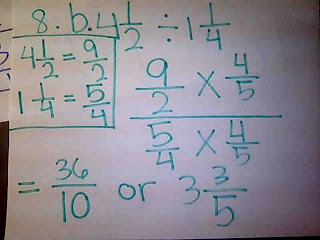 8.b. 4 1/2 ÷ 1 1/4
4 1/2 = 9/2
1 1/4 = 5/4
9/2 × 4/5
5/4 × 4/5
= 36/10 or 3 3/5